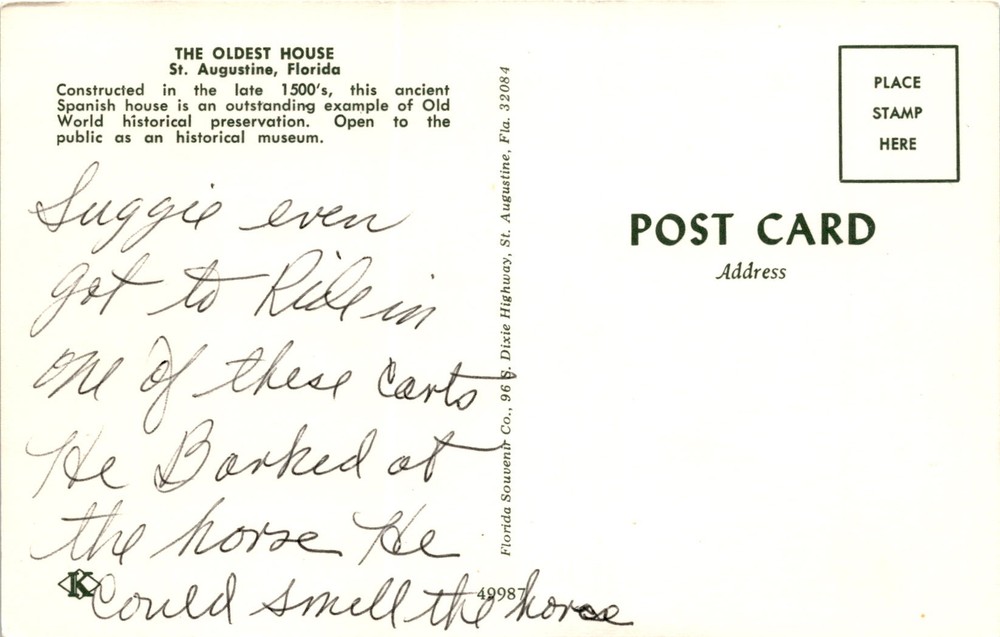 THE OLDEST HOUSE
St. Augustine, Florida
Constructed in the late 1500's, this ancient
Spanish house is an outstanding example of Old
World historical preservation. Open to the
public as an historical museum.
Suggie even
got to Ride in
one of these carts
He Barked at
the horse He
Could smell the horse
K
49987
Florida Souvenir Co., 96 S. Dixie Highway, St. Augustine, Fla. 32084
PLACE
STAMP
HERE
POST CARD
Address